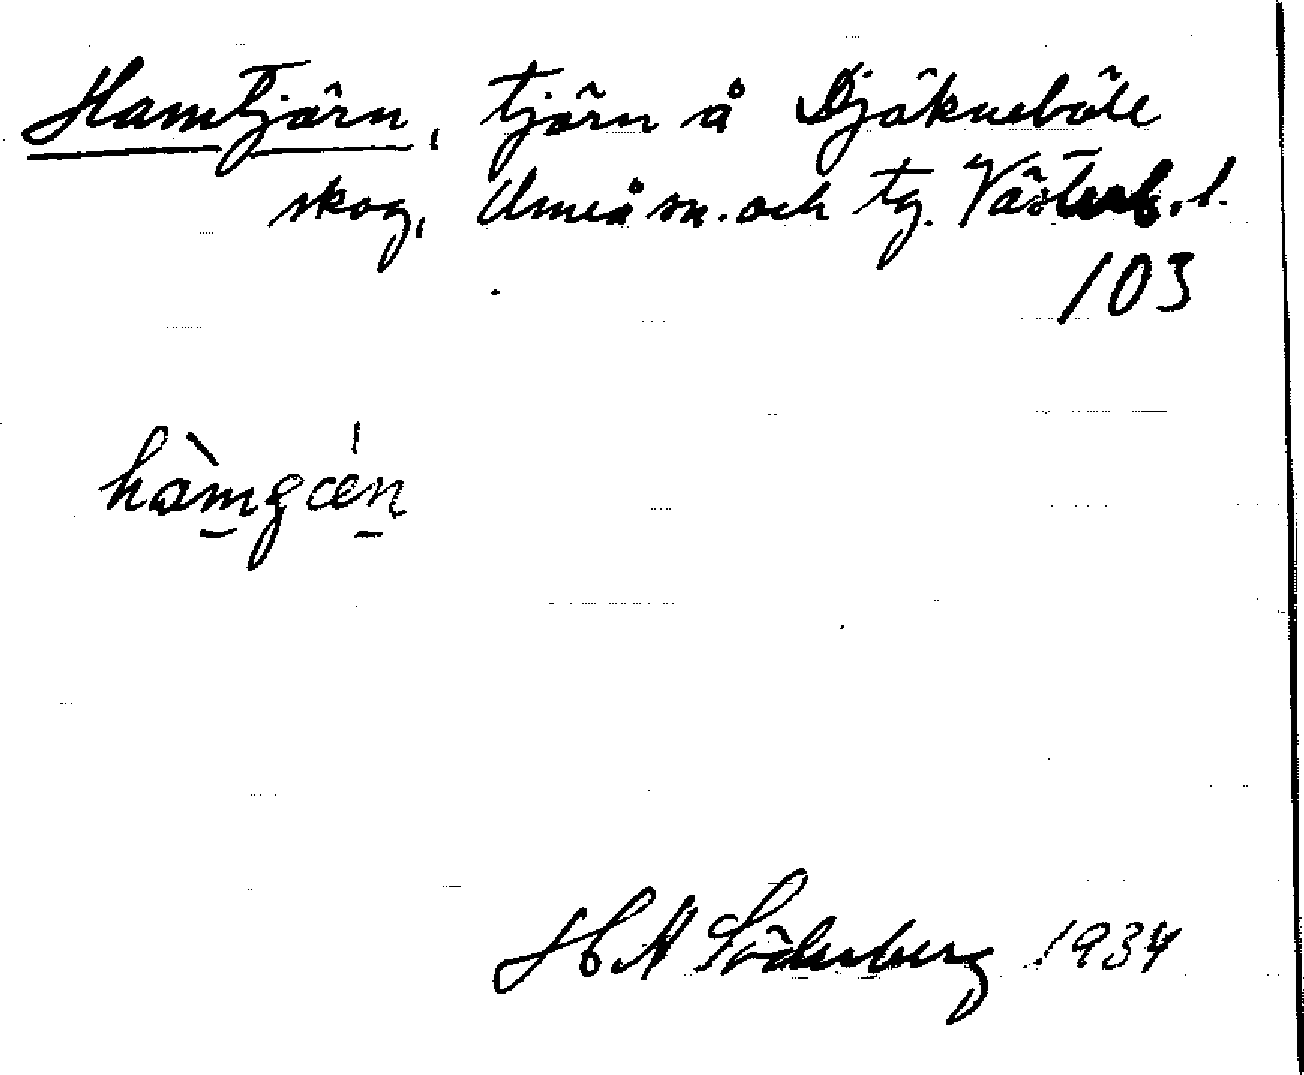 Hamtjärn, tjärn å Djäkneböle
skog, Umeå sn. och tg. Västerb. l.
103
hàmgǽn
H A Söderberg 1934